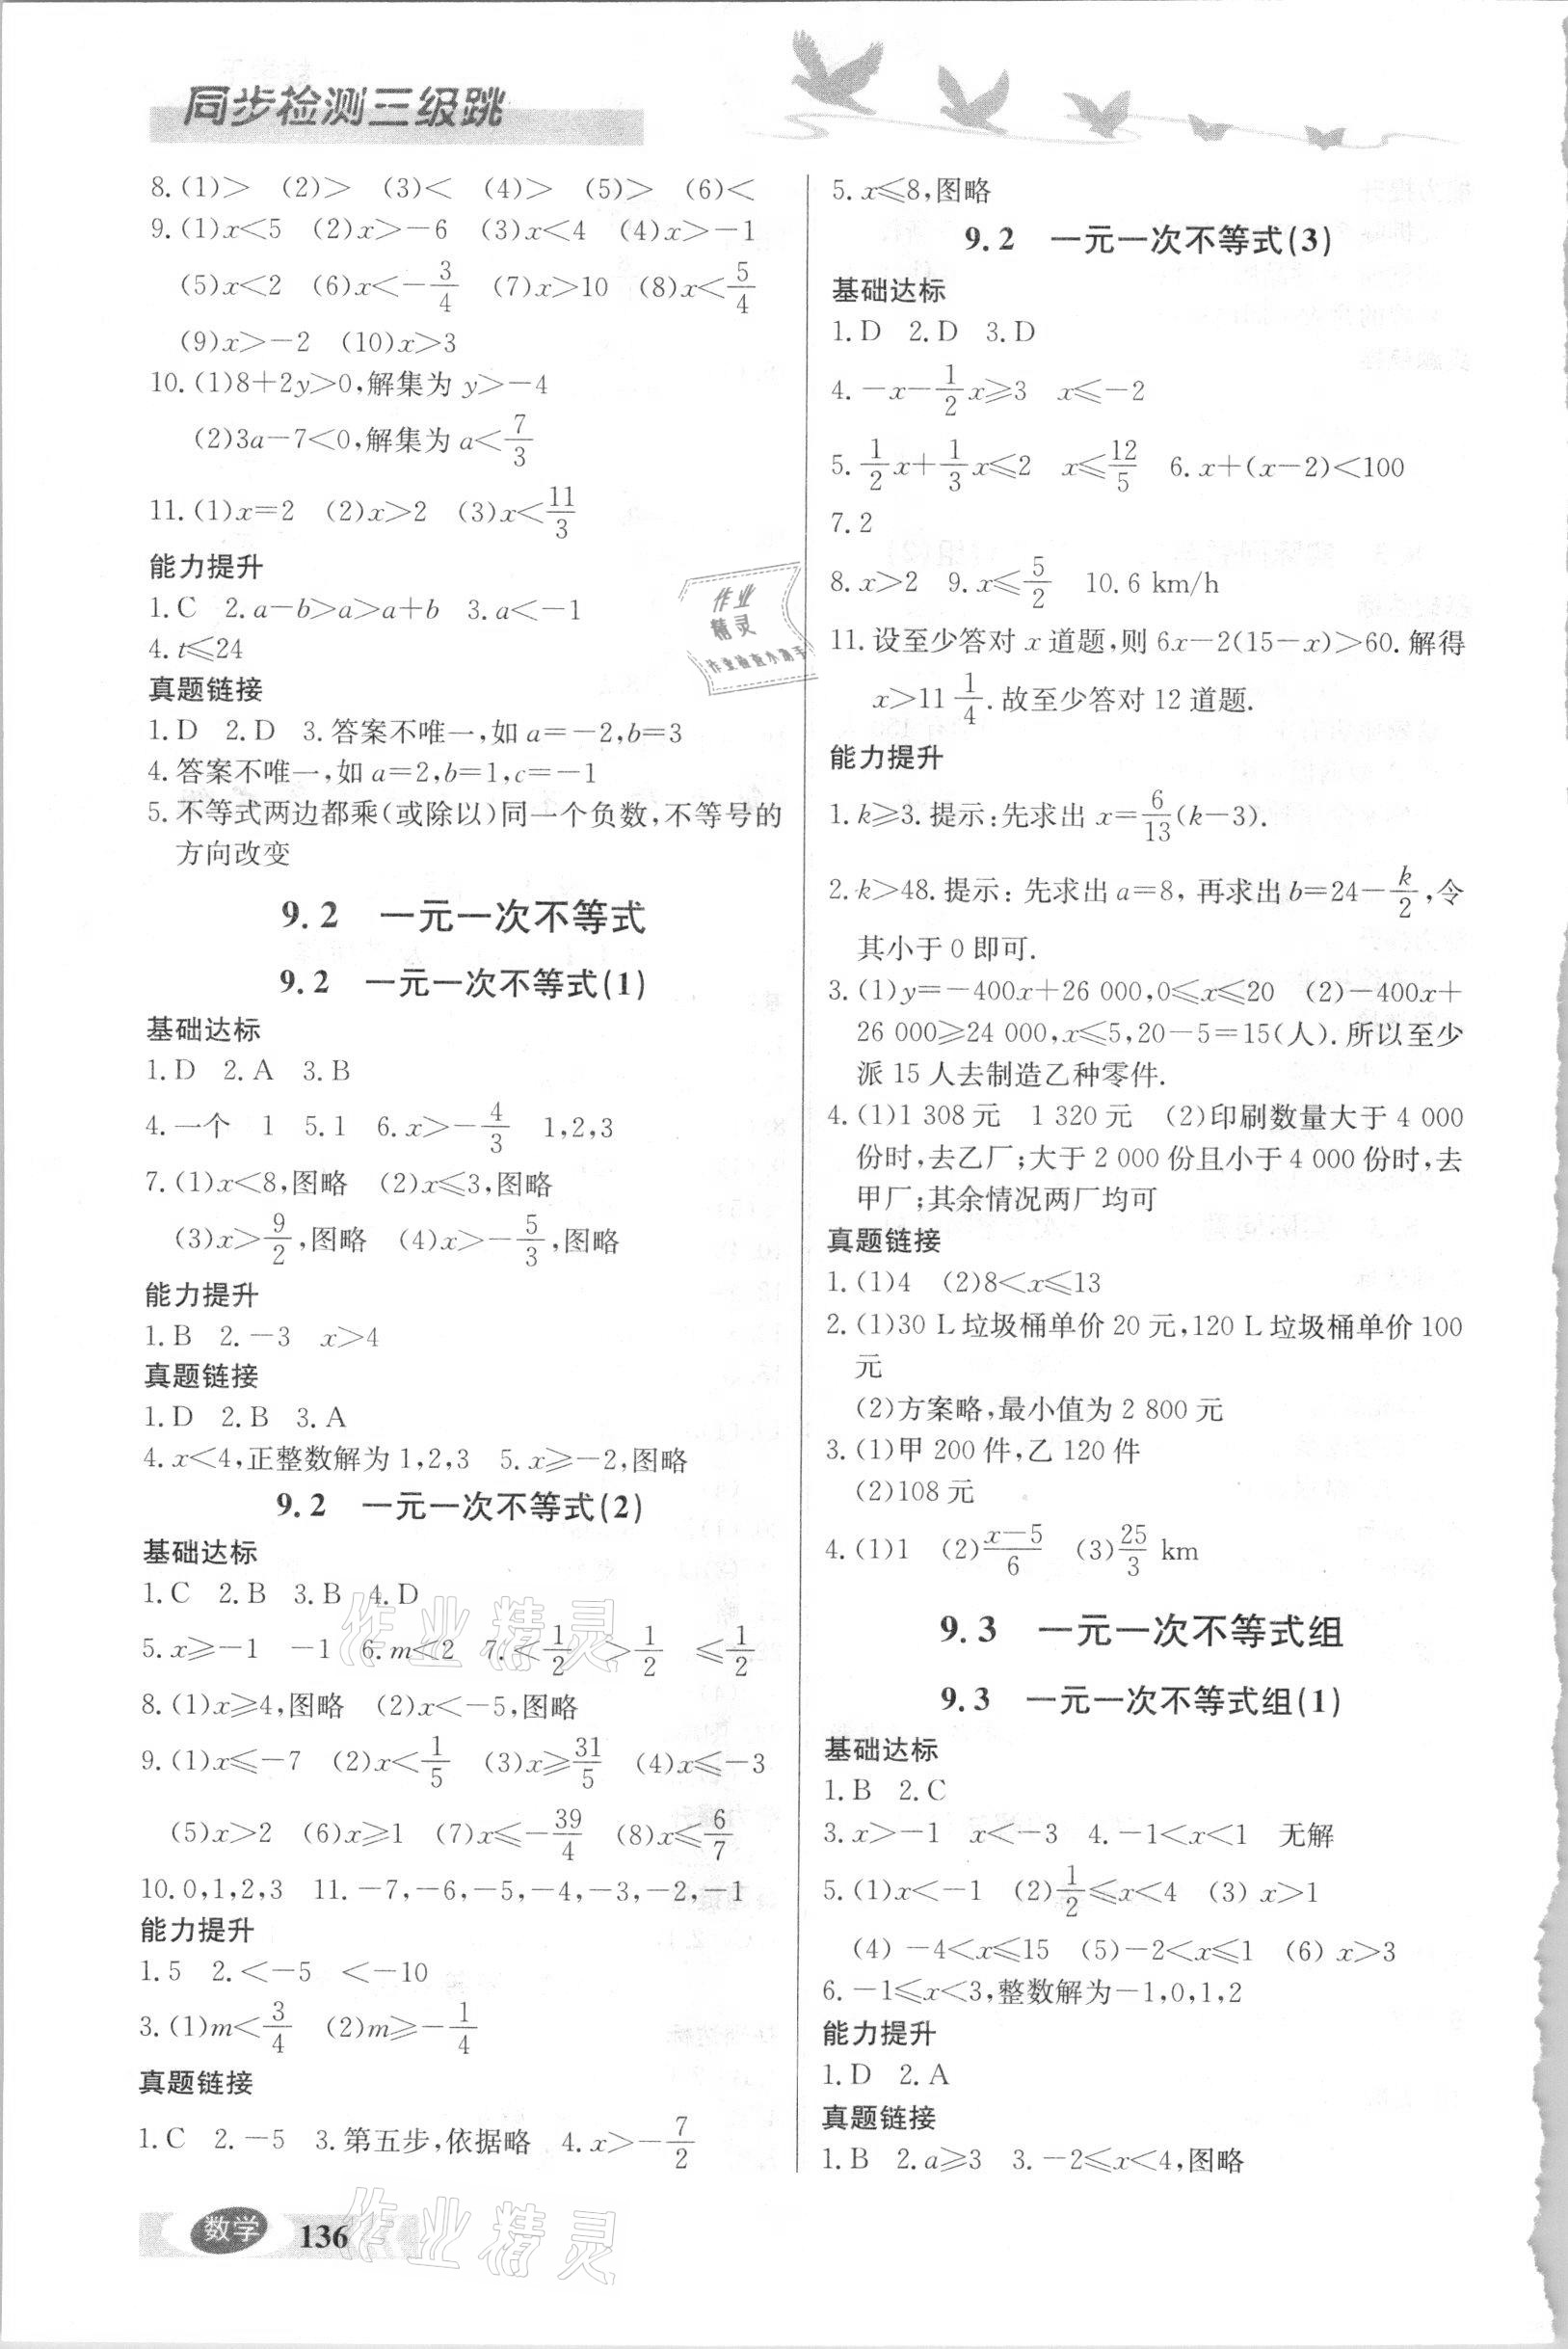 同步检测三级跳
8.(1)> (2)> (3)< (4)> (5)> (6)<
9.(1)x<5 (2)x>-6 (3)x<4 (4)x>-1
(5)x<2 (6)x<-3/4 (7)x>10 (8)x<5/4
(9)x>-2 (10)x>3
10.(1)8+2y>0,解集为 y>-4
(2)3a-7<0,解集为 a<7/3
11.(1)x=2 (2)x>2 (3)x<11/3
能力提升
1.C 2.a-b>a>a+b 3.a<-1
4.t≤24
真题链接
1.D 2.D 3.答案不唯一,如 a=-2,b=3
4.答案不唯一,如 a=2,b=1,c=-1
5.不等式两边都乘(或除以)同一个负数,不等号的
方向改变
9.2 一元一次不等式
9.2 一元一次不等式(1)
基础达标
1.D 2.A 3.B
4.一个 1 5.1 6.x>-4/3 1,2,3
7.(1)x<8,图略 (2)x≤3,图略
(3)x>9/2,图略 (4)x>-5/3,图略
能力提升
1.B 2.-3 x>4
真题链接
1.D 2.B 3.A
4.x<4,正整数解为 1,2,3 5.x≥-2,图略
9.2 一元一次不等式(2)
基础达标
1.C 2.B 3.B 4.D
5.x≥-1 -1 6.m<2 7.<1/2 >1/2 ≤1/2
8.(1)x≥4,图略 (2)x<-5,图略
9.(1)x≤-7 (2)x<1/5 (3)x≥31/5 (4)x≤-3
(5)x>2 (6)x≥1 (7)x≤-39/4 (8)x≤6/7
10.0,1,2,3 11.-7,-6,-5,-4,-3,-2,-1
能力提升
1.5 2.<-5 <-10
3.(1)m<3/4 (2)m≥-1/4
真题链接
1.C 2.-5 3.第五步,依据略 4.x>-7/2
5.x≤8,图略
9.2 一元一次不等式(3)
基础达标
1.D 2.D 3.D
4.-x-1/2x≥3 x≤-2
5.1/2x+1/3x≤2 x≤12/5 6.x+(x-2)<100
7.2
8.x>2 9.x≤5/2 10.6 km/h
11.设至少答对 x 道题,则 6x-2(15-x)>60.解得
x>11 1/4.故至少答对 12 道题.
能力提升
1.k≥3.提示:先求出 x=6/13(k-3).
2.k>48.提示:先求出 a=8,再求出 b=24-k/2,令
其小于 0 即可.
3.(1)y=-400x+26 000,0≤x≤20 (2)-400x+
26 000≥24 000,x≤5,20-5=15(人).所以至少
派 15 人去制造乙种零件.
4.(1)1 308 元 1 320 元 (2)印刷数量大于 4 000
份时,去乙厂;大于 2 000 份且小于 4 000 份时,去
甲厂;其余情况两厂均可
真题链接
1.(1)4 (2)8<x≤13
2.(1)30 L 垃圾桶单价 20 元,120 L 垃圾桶单价 100
元
(2)方案略,最小值为 2 800 元
3.(1)甲 200 件,乙 120 件
(2)108 元
4.(1)1 (2)x-5/6 (3)25/3 km
9.3 一元一次不等式组
9.3 一元一次不等式组(1)
基础达标
1.B 2.C
3.x>-1 x<-3 4.-1<x<1 无解
5.(1)x<-1 (2)1/2≤x<4 (3) x>1
(4) -4<x≤15 (5)-2<x≤1 (6) x>3
6.-1≤x<3,整数解为-1,0,1,2
能力提升
1.D 2.A
真题链接
1.B 2.a≥3 3.-2≤x<4,图略
作业
精灵
作业检查小助手
作业精灵
作业精灵
数学 136